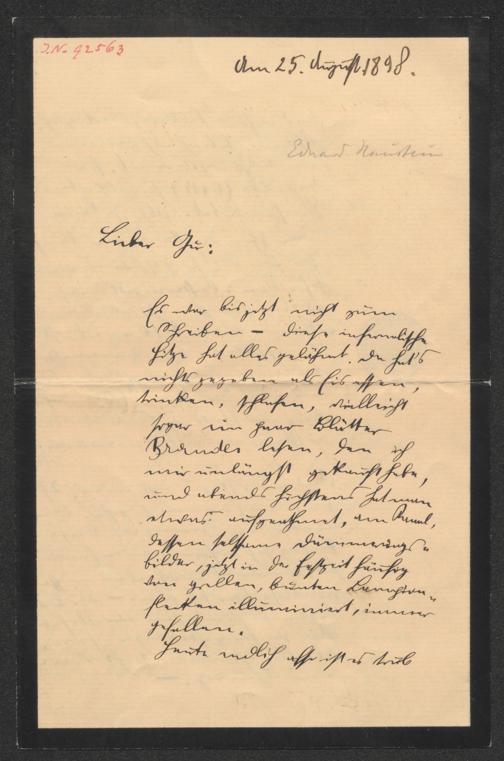 J.N. 92563
Am 25. August 1898.
Eduard
Lieber Gu:
Es war bis jetzt nicht zum
Schreiben – diese infernalische
Hitze hat alles gelähmt. Da hat's
nichts gegeben als Eis essen,
trinken, schlafen, vielleicht
sogar ein paar Blätter
Brandes lesen, den ich
mir unlängst gekauft habe,
und abends höchstens hat man
etwas aufgeathmet, am Kanal,
dessen seltsame Dämmerungs-
bilder, jetzt in der Festzeit häufig
von grellen, bunten Lampion-
flecken illuminiert, immer
gefallen.
Heute endlich ist es trüb